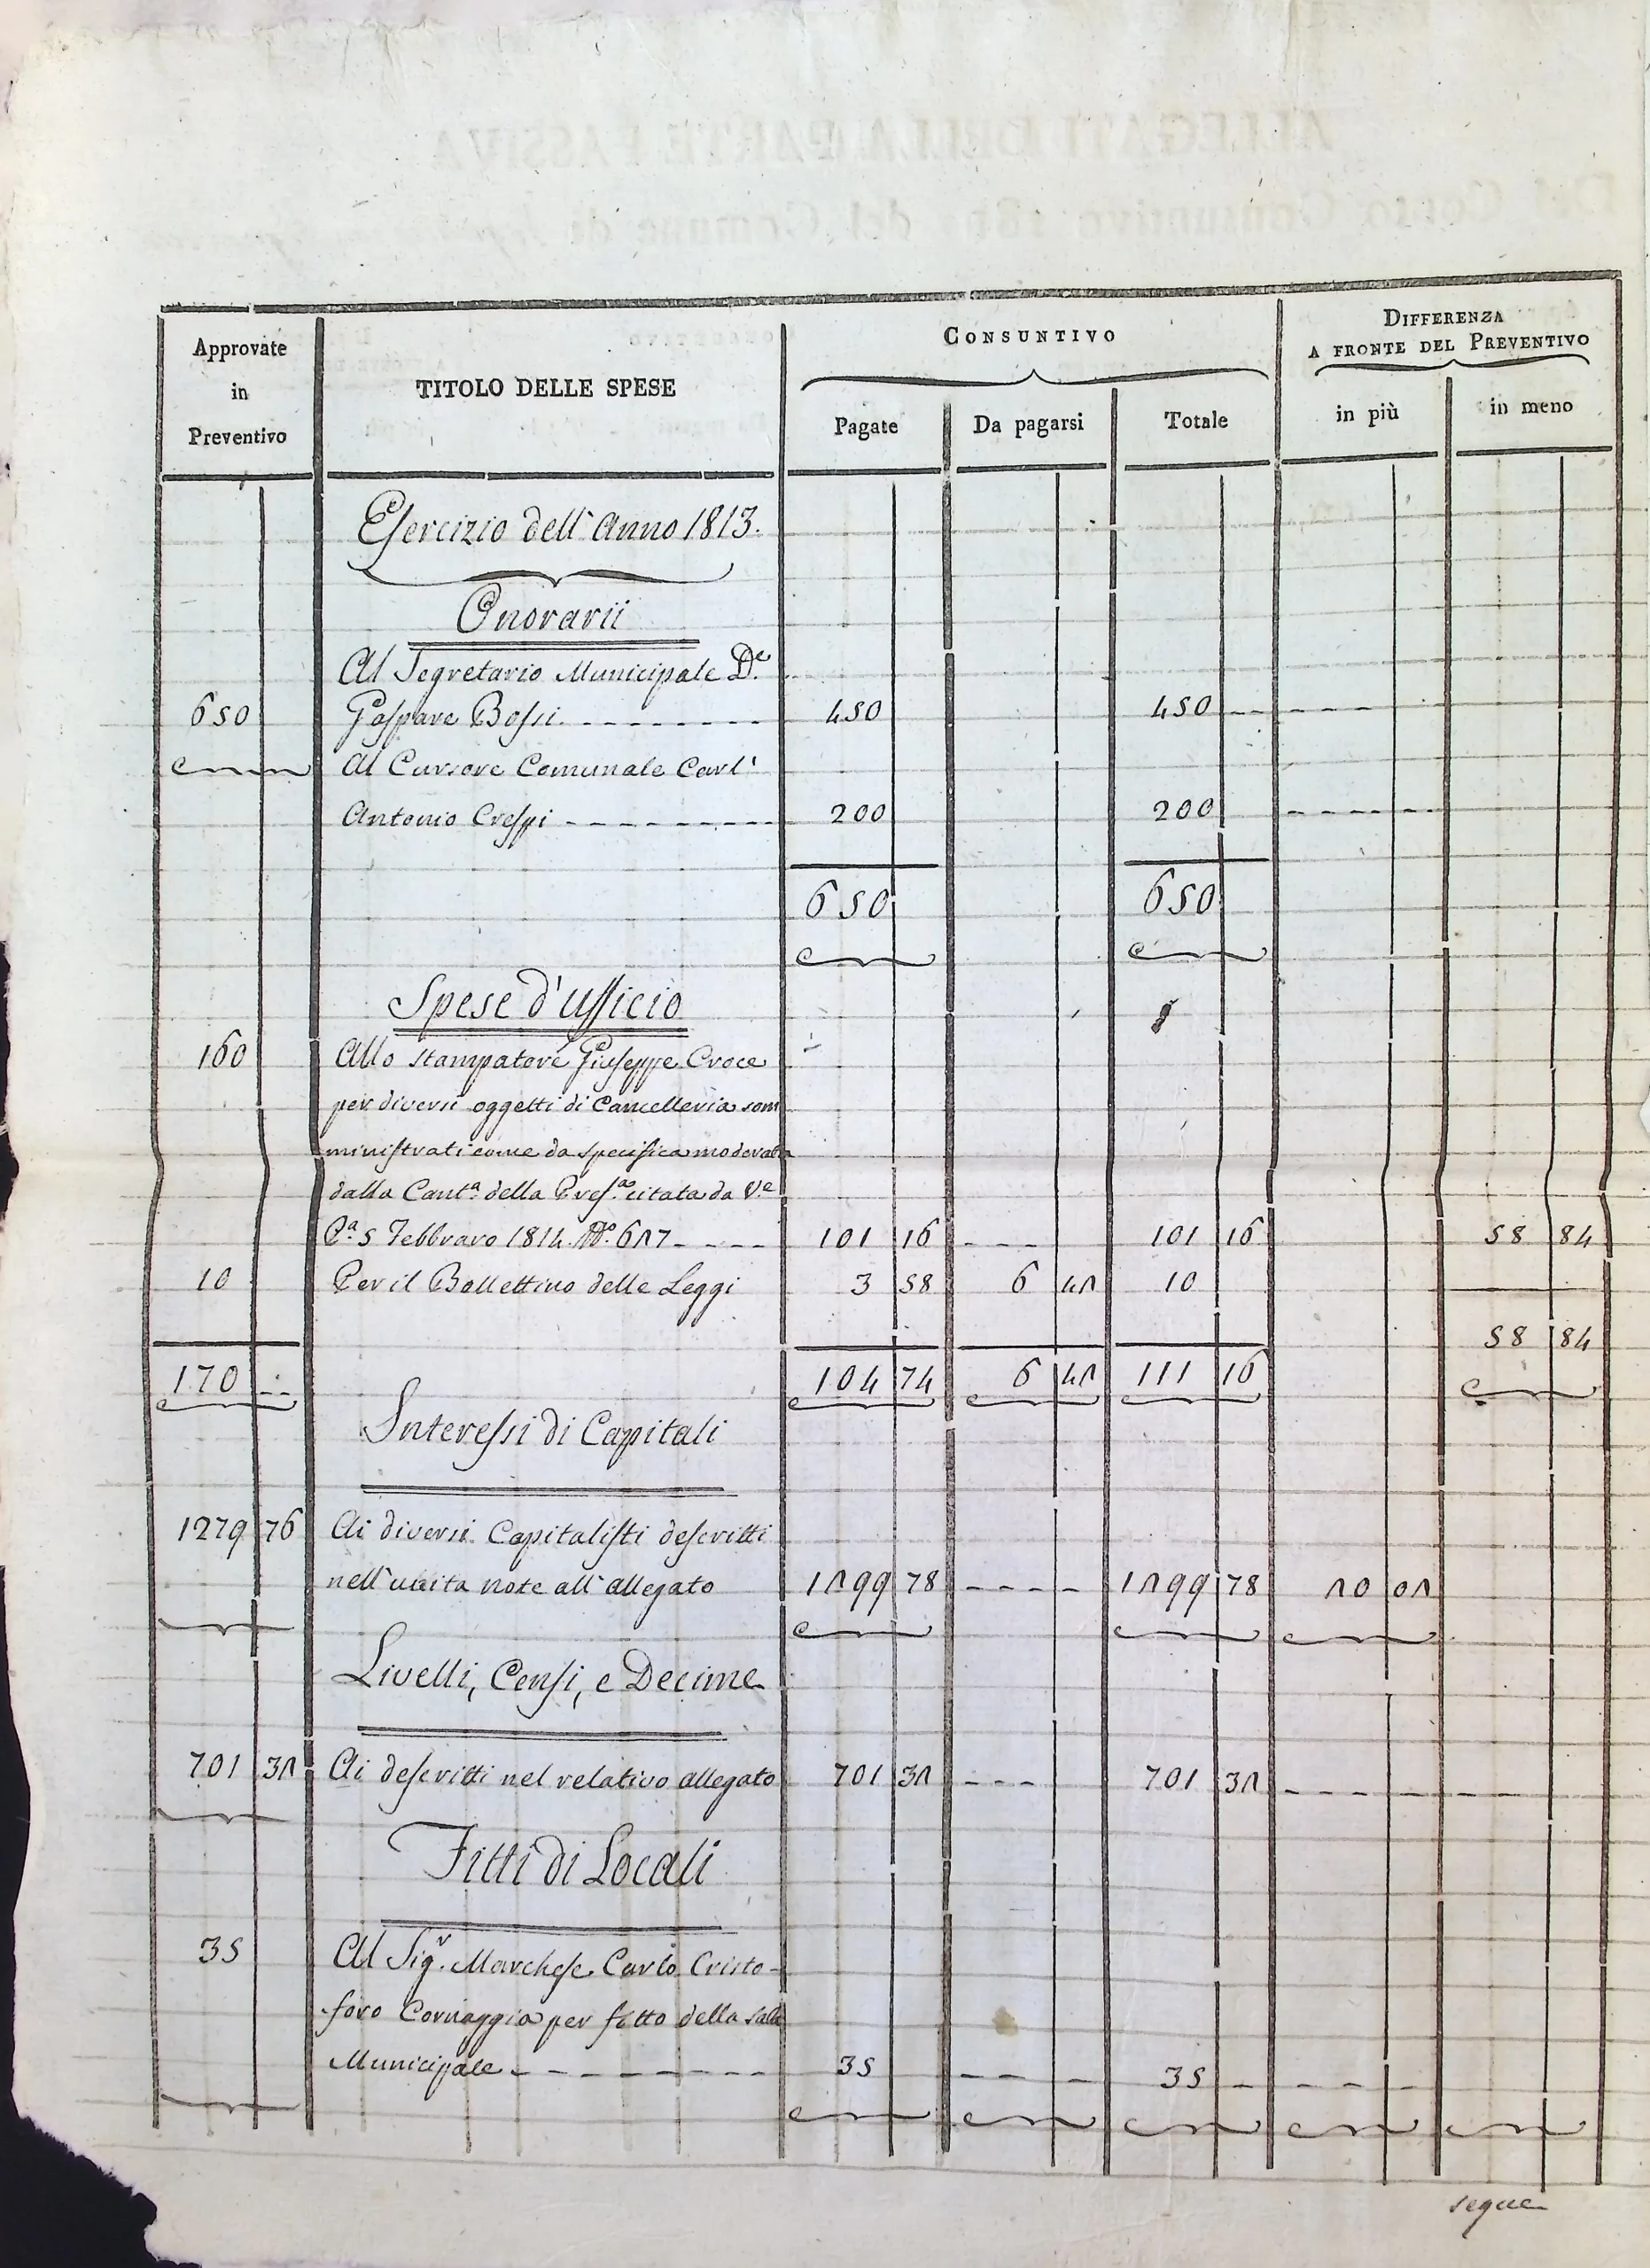 Approvate
in
Preventivo
TITOLO DELLE SPESE
CONSUNTIVO
Pagate
Da pagarsi
Totale
DIFFERENZA
A FRONTE DEL PREVENTIVO
in più
in meno
Esercizio dell'Anno 1813.
Onorarii
Al Segretario Municipale D.e
650 Gaspare Bossi 450 450
Al Cursore Comunale Carl'
Antonio Crespi 200 200
650 650
Spese d'Ufficio
160 Allo Stampatore Giuseppe Croce
per diversi oggetti di Cancelleria som
ministrati come da specifica moderata
dalla Cant.a della Pref.a citata da V.e
P.a 5 Febbraro 1814. N.o 627 101 16 101 16 58 84
10 Per il Bollettino delle Leggi 3 58 6 42 10
58 84
170 104 74 6 42 111 16
Interessi di Capitali
1279 76 Ai diversi Capitalisti descritti
nell'unita note all'allegato 1299 78 1299 78 20 02
Livelli, Censi, e Decime
701 32 Ai descritti nel relativo allegato 701 32 701 32
Fitti di Locali
35 Al Sig.r Marchese Carlo Cristo-
foro Cornaggia per fitto della sala
Municipale 35 35
segue